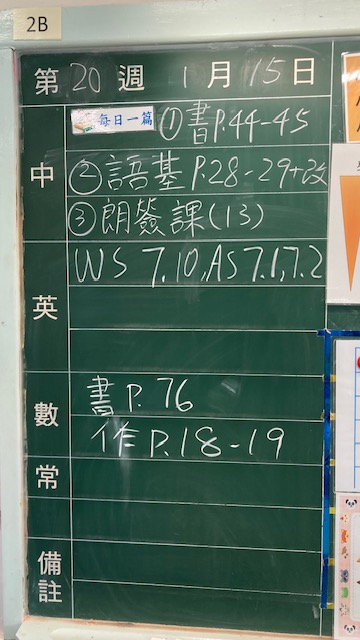 2B
第 20 週 1 月 15 日
中
每日一篇 ①書P.44-45
②語基 P.28-29+改
③朗簽課(13)
英
WS 7.10, AS 7.1, 7.2
數
書P. 76
作P.18-19
常
備註